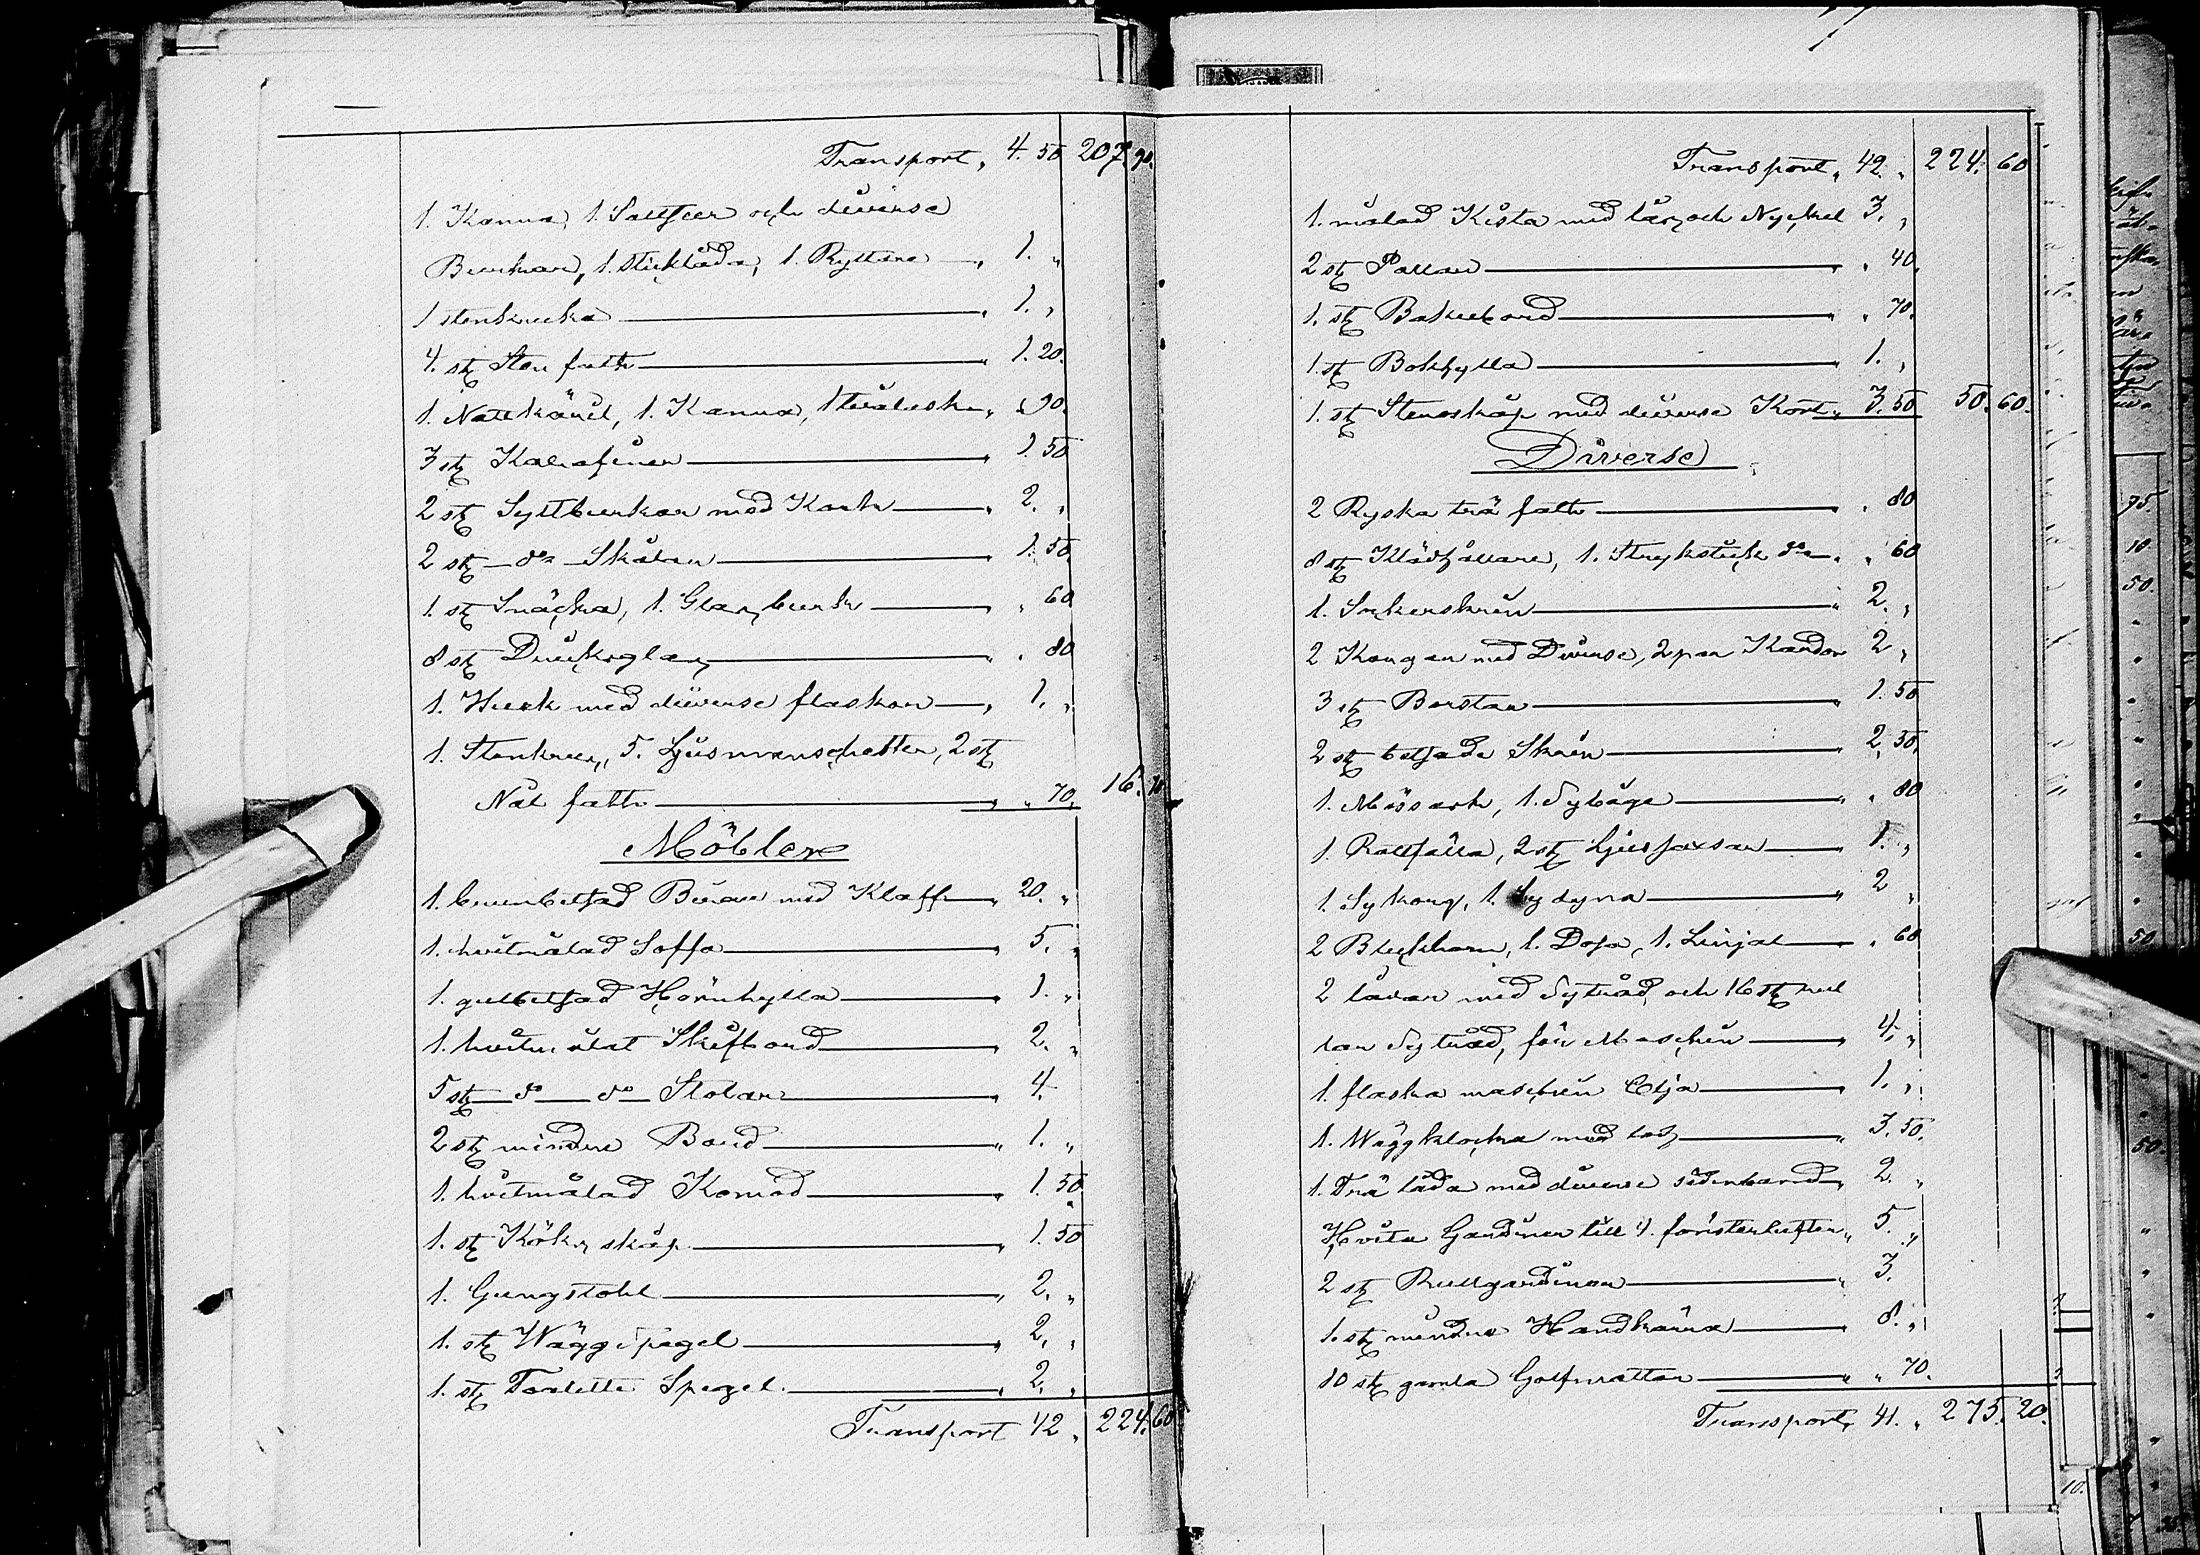 Transport, 4. 50 207. 90.
1. Kanna, 1. Saltkar och diverse
Burkar, 1. Sticklåda, 1. Ryttare 1. "
1 stenkruka 1. "
4. st Sten fath 1. 20.
1. Nattkäril, 1. Kanna, 1 tvålask " 90.
3 st Karafiner 1. 50
2 st Syltburkar med Kork 2. "
2 st do Skålar 1. 50
1. st Snäcka, 1. Glasburk " 60
8 st Dricksglas " 80
1. Hurk med diverse flaskor 1. "
1. Stenkrus, 5. Ljusmanschetter, 2 st
Nät fath " 70. 16. 70
Möbler
1. brunbetsad Buran med Klaff 20. "
1. hvitmålad Soffa 5. "
1. gulbetsad Hörnhylla 1. "
1. hvitmålat Skifbord 2. "
5 st do do Stolar 4.
2 st mindre Bord 1. "
1. hvitmålad Komod 1. 50
1. st Köksskåp 1. 50
1. Gungstohl 2. "
1. st Wäggspegel 2. "
1. st Toalette Spegel 2. "
Transport 42 " 224. 60
Transport, 42. " 224. 60
1. målad Kista med lås och Nyckel 3. "
2 st Pallar " 40.
1. st Bakebord " 70.
1 st Bokhylla 1. "
1. st Steroskåp med diverse Kort 3. 50 50. 60.
Diverse
2 Ryska trä fath " 80
8 st Klädhållare, 1. Strykstick do " 60
1. Sockerskrin 2. "
2 Korgar med Diverse, 2 par Kardor 2 "
3 st Borstar 1. 50
2 st betsade Skrin 2. 50
1. Mässark, 1. Sybåge " 80
1. Råttfälla, 2 st Ljussaxar 1. "
1. Sykorg, 1. Sydyna 2 "
2 Bleckhorn, 1. Dosa, 1. Linjal " 60
2 lådar med Sytråd, och 16 st rul
lar Sytråd, för Maschin 4. "
1. flaska maschin Olja 1. "
1. Wäggklocka med lod 3. 50.
1. Trä låda med diverse sidenband 2. "
Hvita Gardiner till 4. fönsterlufter 5. "
2 st Rullgardiner 3.
1. st mindre Handkärra 8. "
10 st gamla Golfmattor " 70.
Transport, 41. " 275. 20.